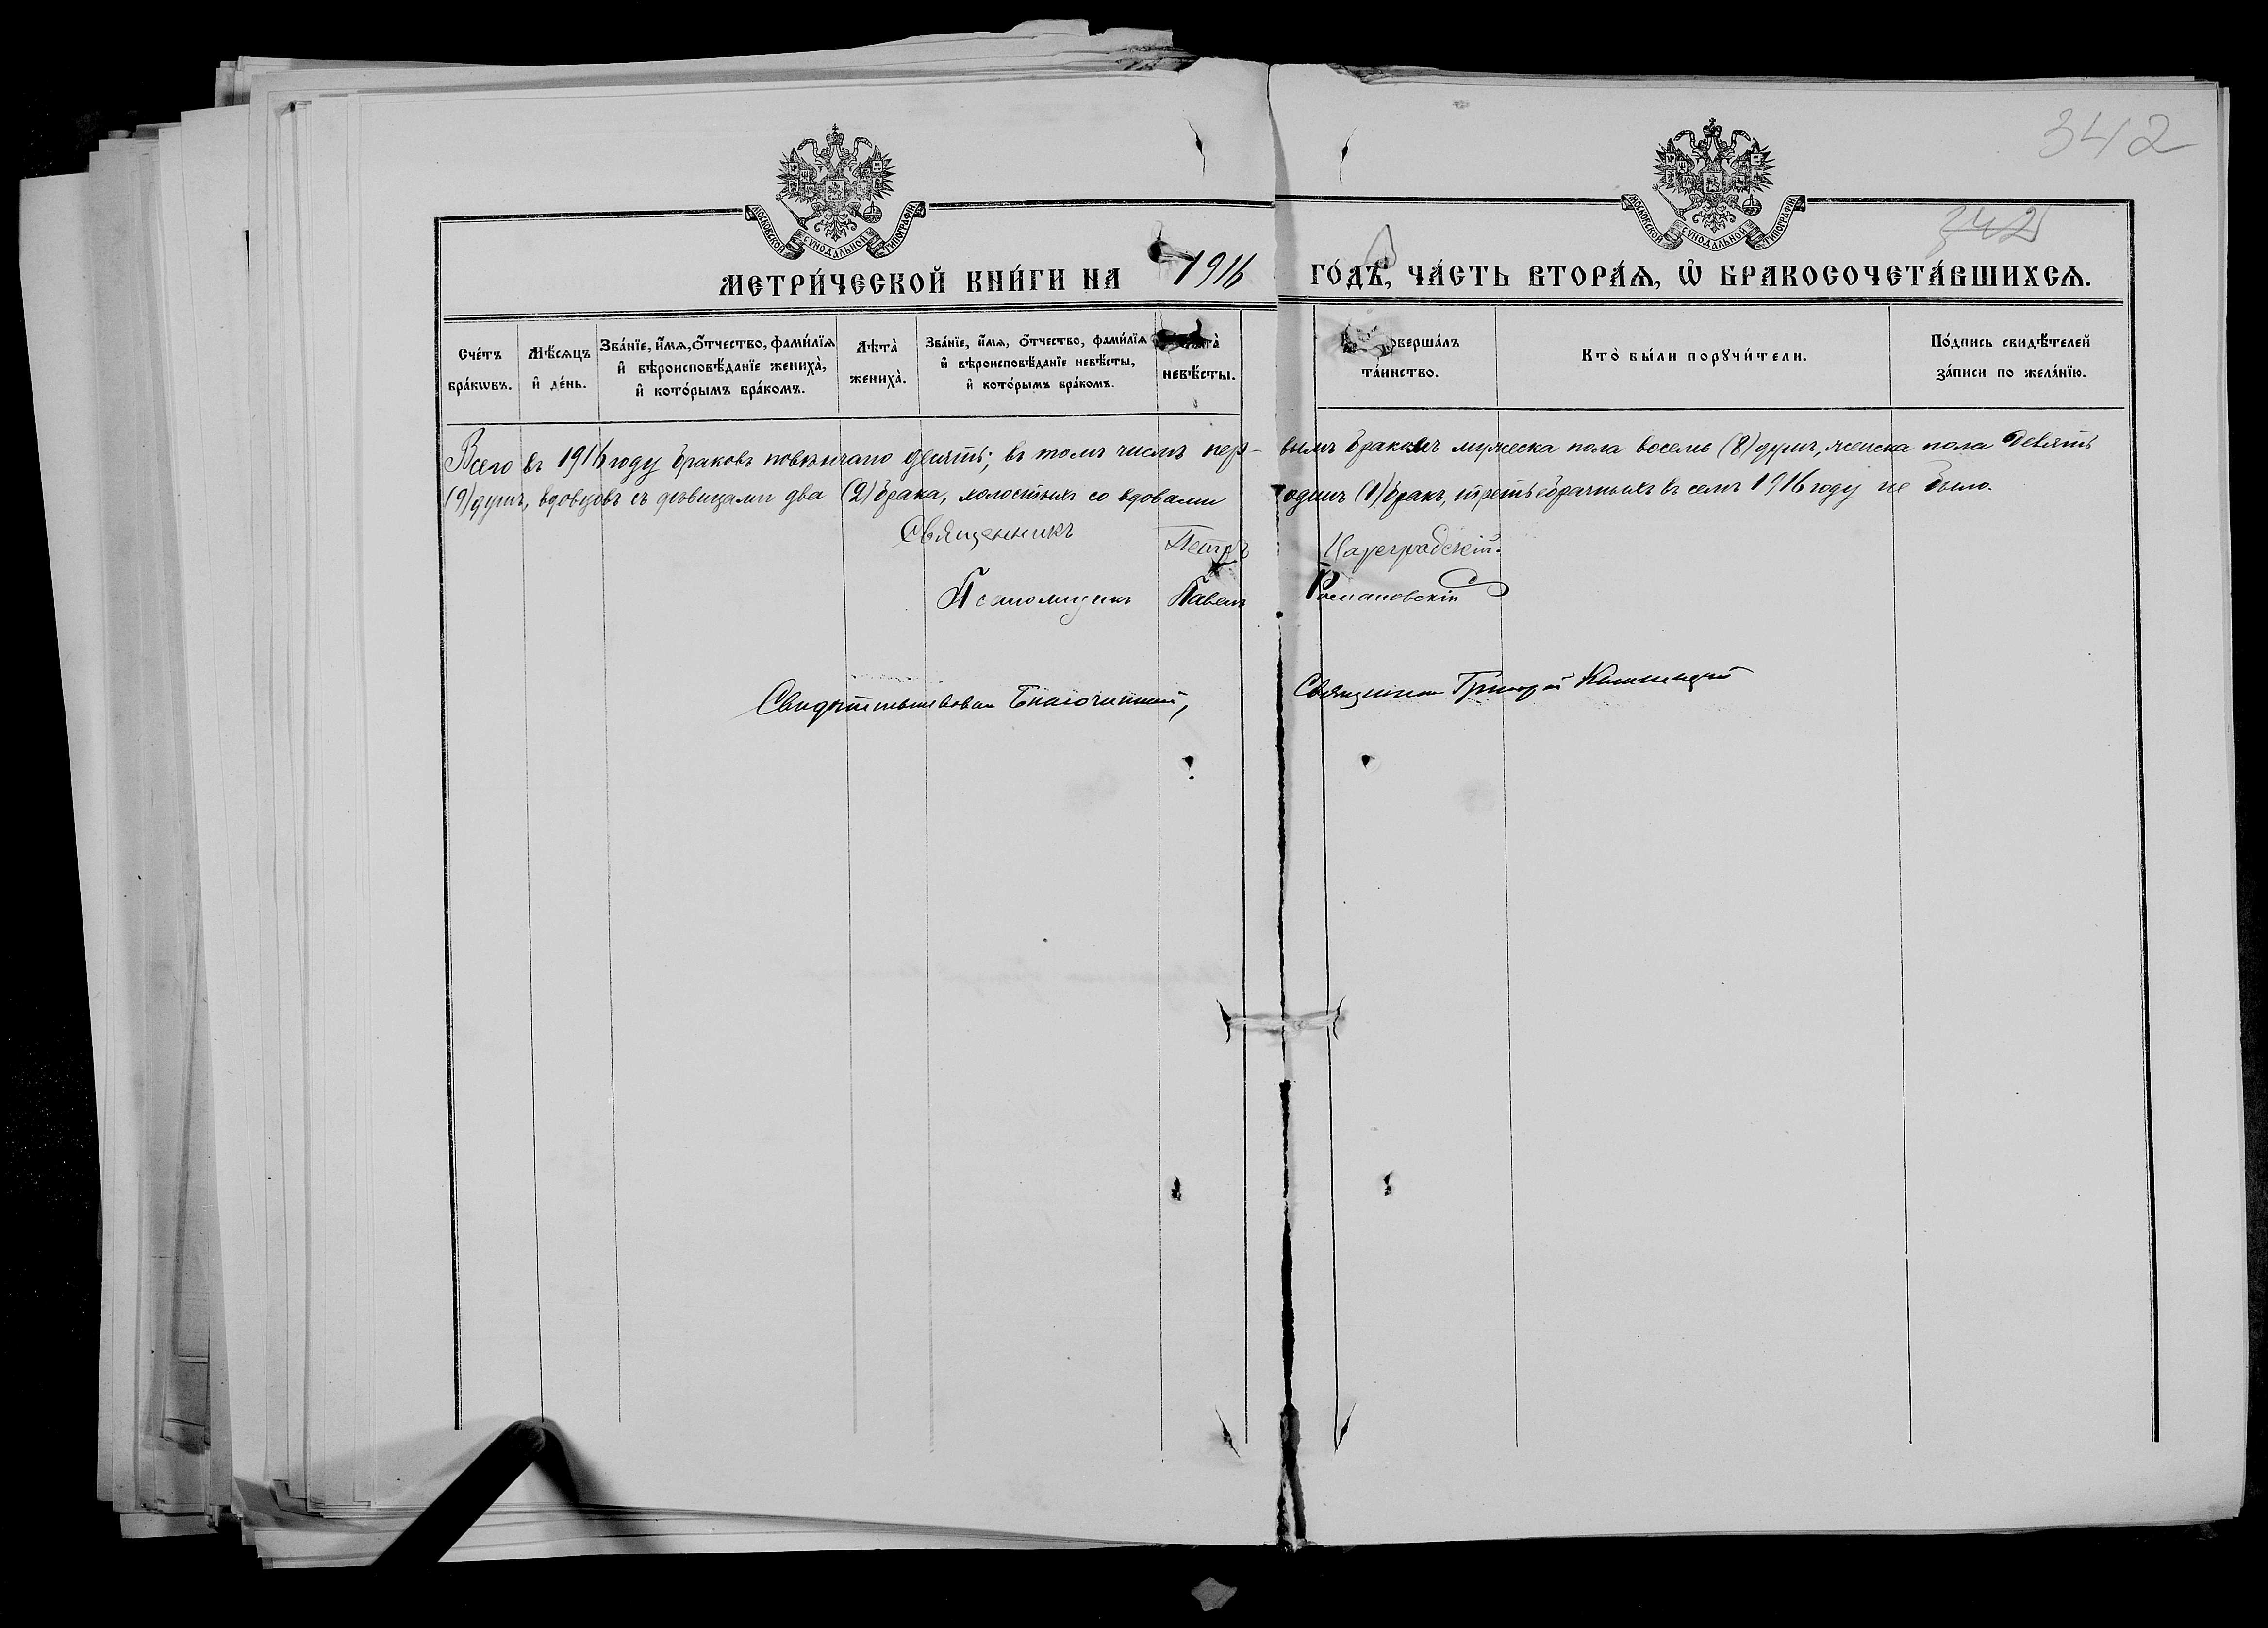 342
342
МОСКОВСКОЙ СУНОДАЛЬНОЙ ТИПОГРАФІИ
МОСКОВСКОЙ СУНОДАЛЬНОЙ ТИПОГРАФІИ
МЕТРИ́ЧЕСКОЙ КНИ́ГИ НА 1916 ГО́ДЪ, ЧА́СТЬ ВТОРА́Ѧ, Ѽ БРАКОСОЧЕТА́ВШИХСѦ.
Сче́тъ бра́кѡвъ.
Мѣ́сяцъ и҆ де́нь.
Зва́нїе, и҆́мѧ, ѻ҆́тчество, фами́лїѧ и҆ вѣроисповѣ́данїе жениха̀, и҆ кото́рымъ бра́комъ.
Лѣта̀ жениха̀.
Зва́нїе, и҆́мѧ, ѻ҆́тчество, фами́лїѧ и҆ вѣроисповѣ́данїе невѣ́сты, и҆ кото́рымъ бра́комъ.
невѣ́сты.
оверша́лъ та́инство.
Кто̀ бы́ли порꙋчи́тели.
По́дпись свидѣ́телей за́писи по жела́нїю.
Всего въ 1916 году браковъ повѣнчано десять; въ томъ числѣ пер-вымъ бракомъ мужеска пола восемь (8) душъ, женска пола девять
(9) душъ, вдовцовъ съ дѣвицами два (2) брака, холостыхъ со вдовами одинъ (1) бракъ, третьебрачныхъ въ семъ 1916 году не было.
Священникъ Петръ Цареградскій.
Псаломщикъ Павелъ Романовскій
Свидѣтельствовалъ Благочинный, Священникъ Григорій